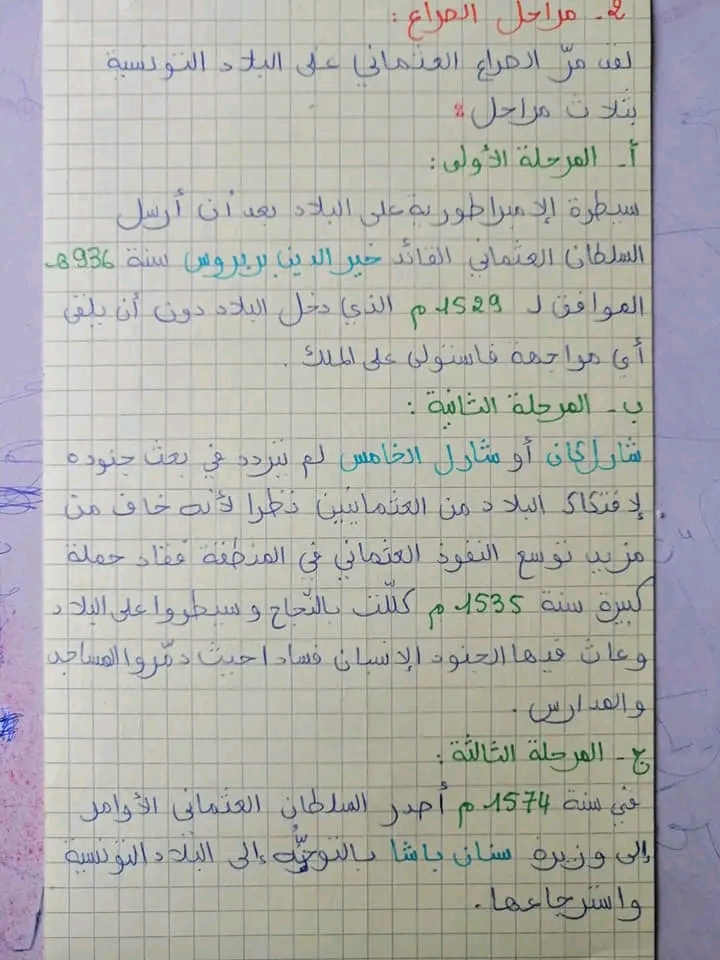 2- مراحل الصراع :
لقد مرّ الصراع العثماني على البلاد التونسية
بثلاث مراحل :
أ- المرحلة الأولى :
سيطرة الإمبراطورية على البلاد بعد أن أرسل
السلطان العثماني القائد خير الدين بربروس سنة 936هـ
الموافق لـ 1529م الذي دخل البلاد دون أن يلقى
أي مواجهة فاستولى على الملك .
ب- المرحلة الثانية :
شارلكان أو شارل الخامس لم يتردد في بعث جنوده
لإفتكاك البلاد من العثمانيين نظرا لأنه خاف من
مزيد توسع النفوذ العثماني في المنطقة فقاد حملة
كبيرة سنة 1535م كلّلت بالنّجاح و سيطروا على البلاد
وعاث فيها الجنود الإسبان فسادا حيث دمّروا المساجد
والمدارس .
ج- المرحلة الثالثة :
في سنة 1574م أصدر السلطان العثماني الأوامر
إلى وزيره سنان باشا بالتوجّه إلى البلاد التونسية
واسترجاعها .